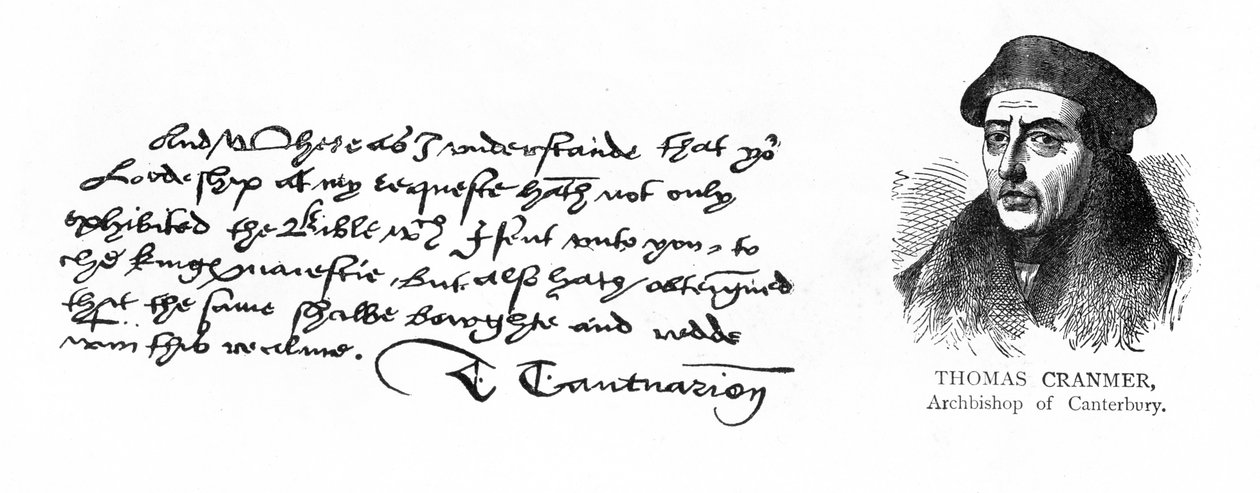 And Where as I understande that yor
Lordeship at my requeste hath not only
exhibited the Bible wch I sent unto you, to
the kings maiestie, but also hath obteyned
that the same shalbe bowghte and redde
wtin this realme.
T Cantuarien
THOMAS CRANMER,
Archbishop of Canterbury.